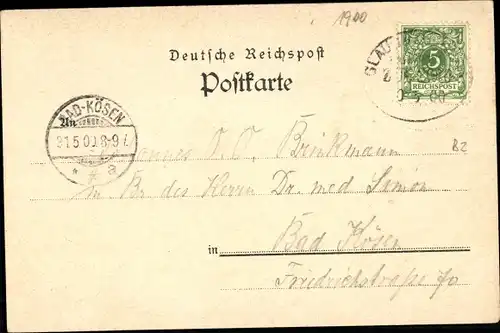 1900
Deutsche Reichspost
Postkarte
5
REICHSPOST
BAD-KÖSEN
31.5.00.8-9
* a
An
Brinkmann
des Herrn Dr. med Simon
B2
in Bad Kösen
Friedrichstraße